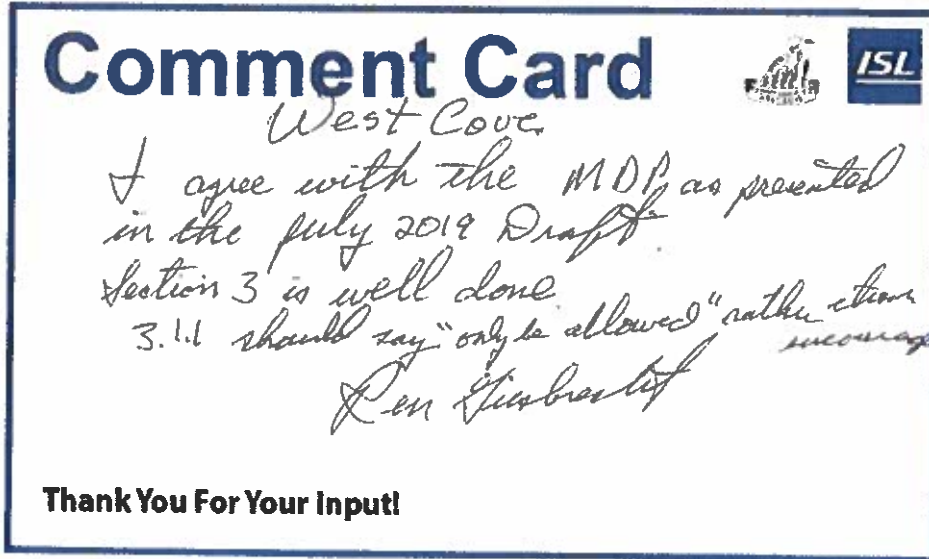 Comment Card
ISL
West Cove
I agree with the MDP as presented
in the July 2019 Draft
Section 3 is well done
3.1.1 should say "only be allowed" rather than
encourage
Ren
Thank You For Your Input!